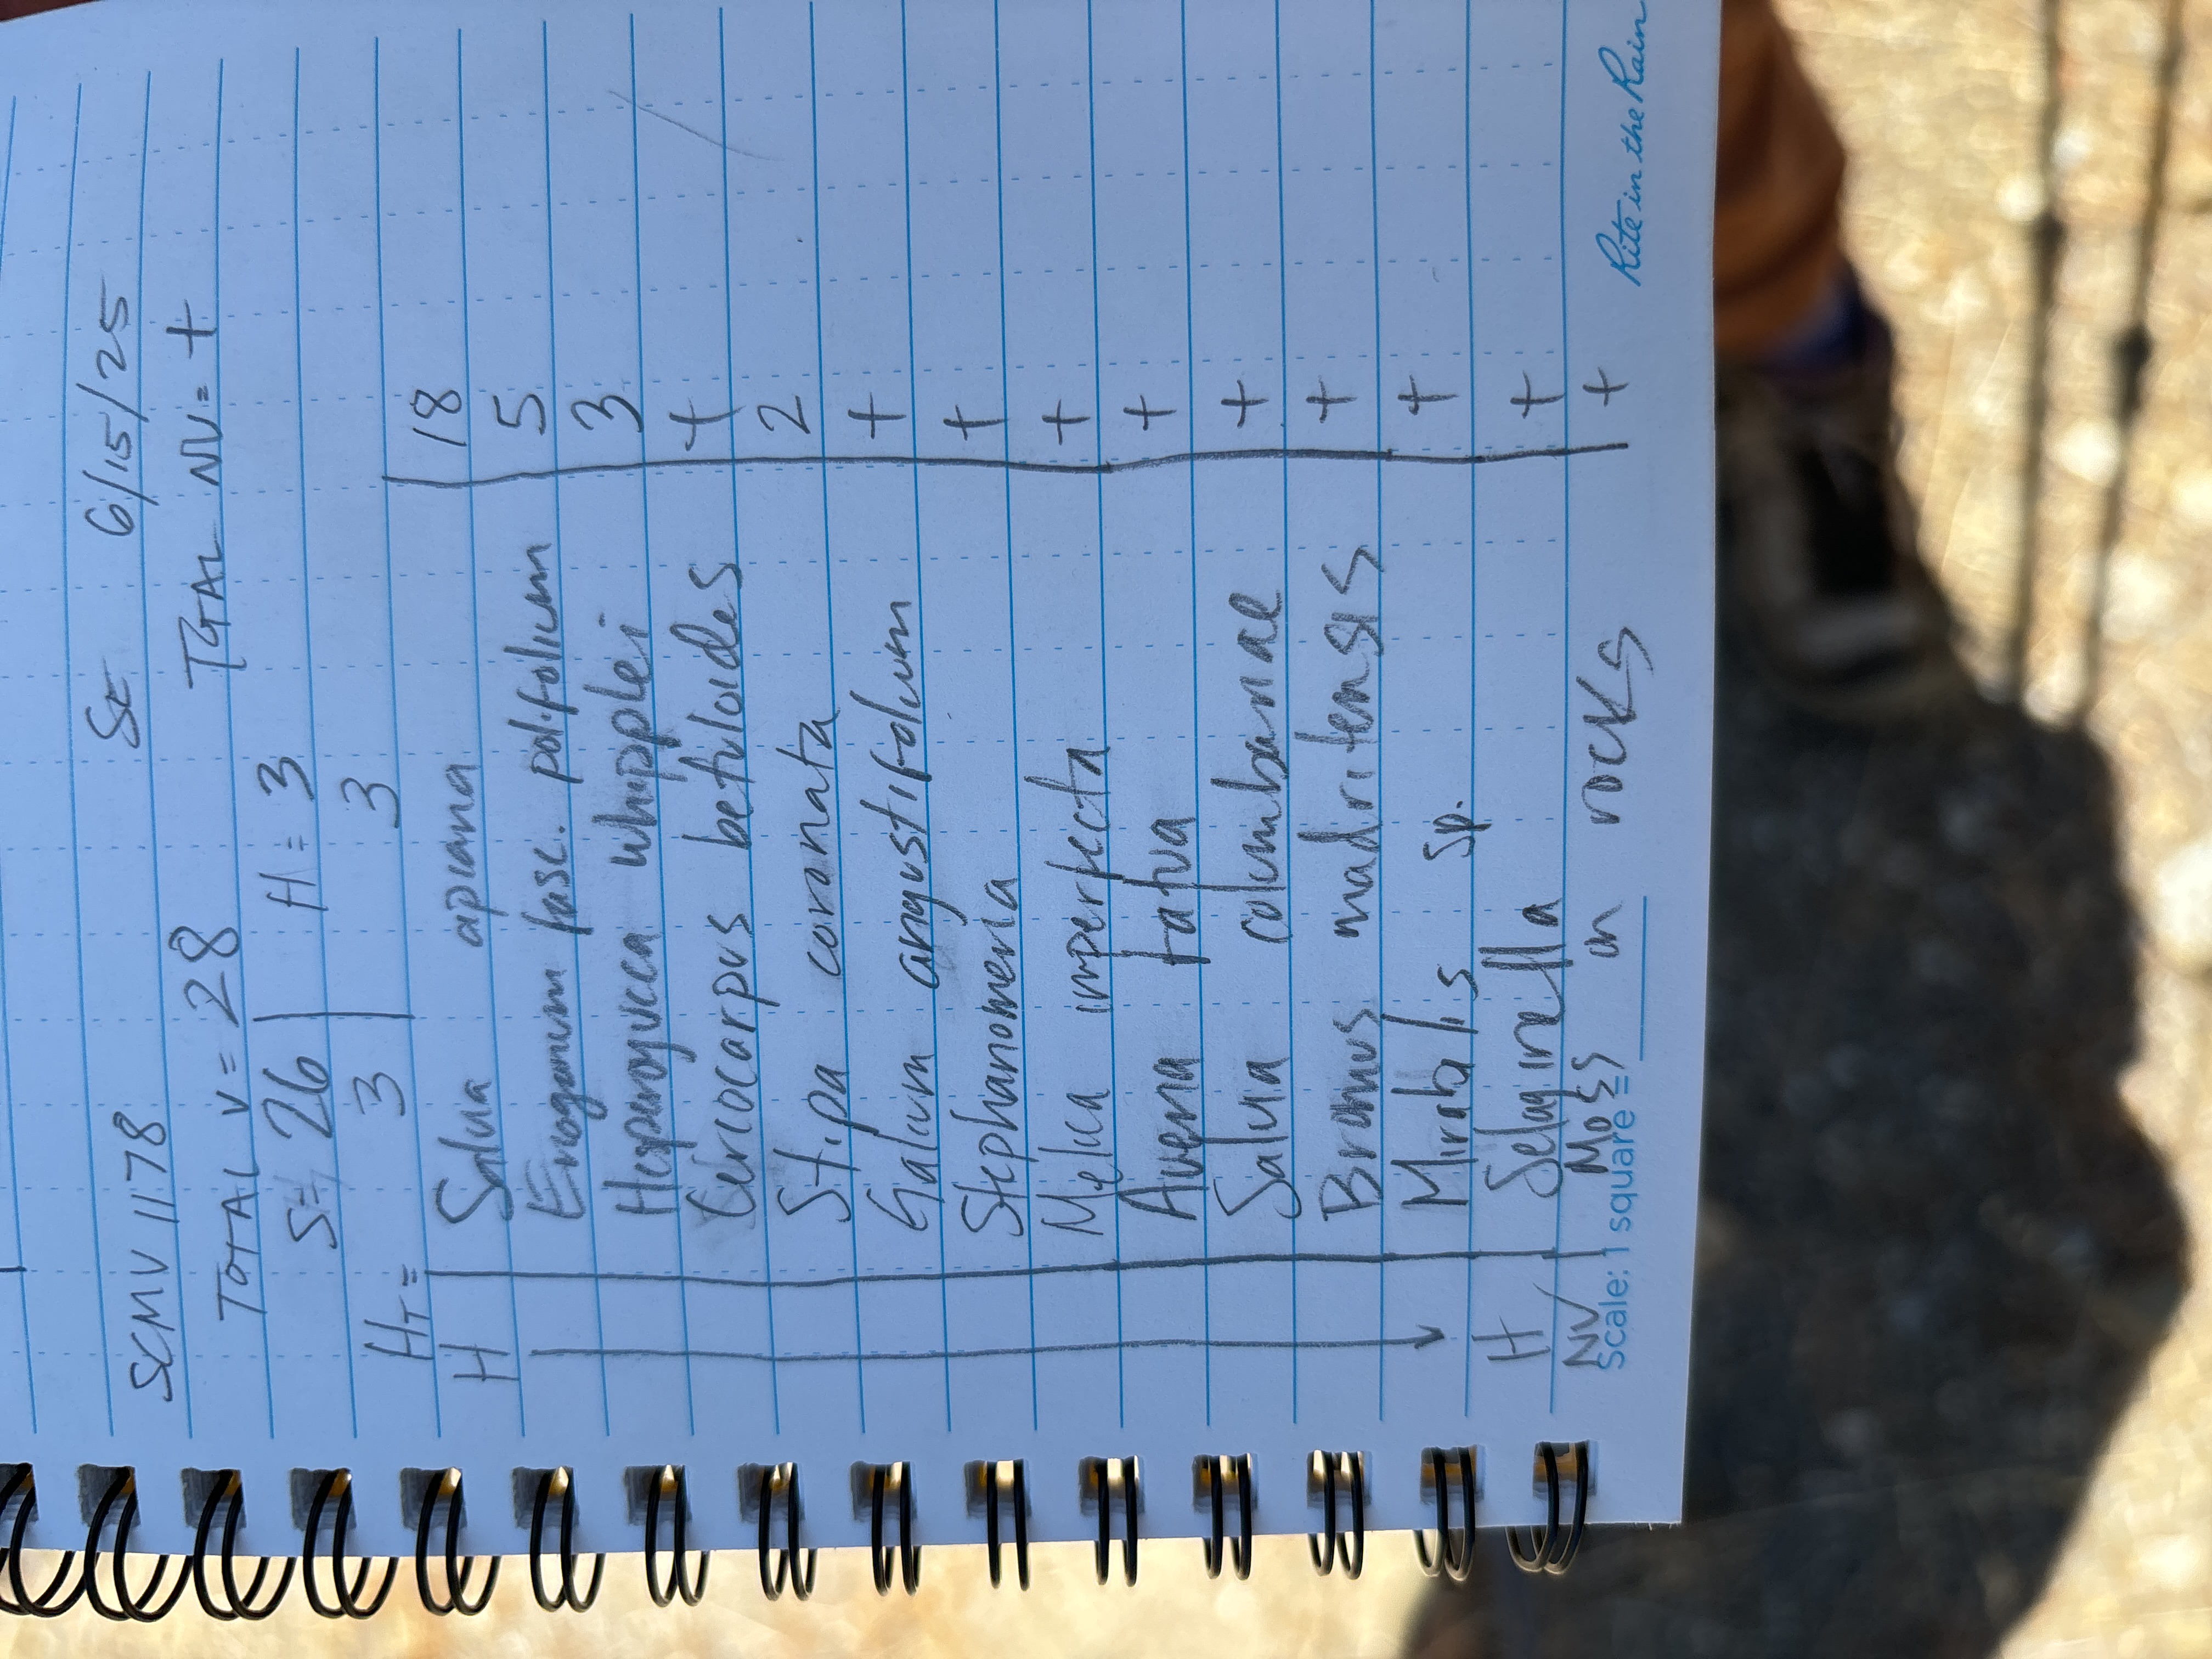 SCMV 1178 SE 6/15/25
TOTAL V = 28 TOTAL NV = +
S = 26 | H = 3
HT = 3 | 3
H Salvia apiana 18
Eriogonum fasc. polifolium 5
Hesperoyucca whipplei 3
Cercocarpus betuloides +
Stipa coronata 2
Galium angustifolium +
Stephanomeria +
Melica imperfecta +
Avena fatua +
Salvia columbariae +
Bromus madritensis +
Mirabilis sp. +
H Selaginella +
NV Moss on rocks +
Scale: 1 square =
Rite in the Rain